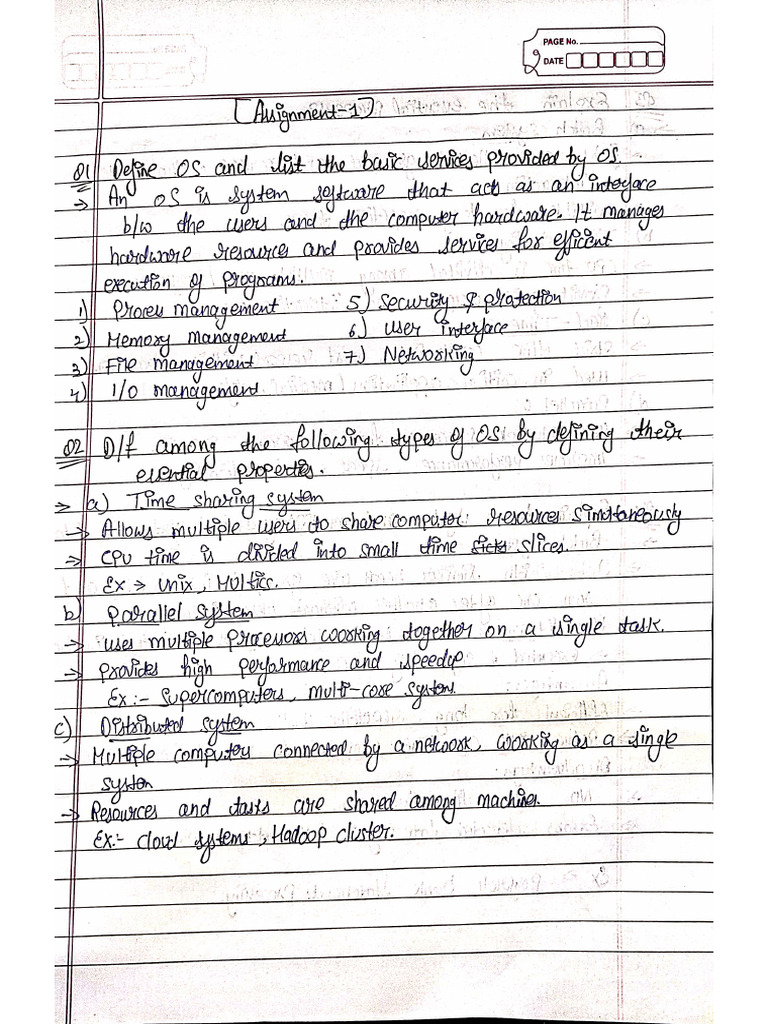 PAGE No.
DATE
[Assignment-1]
Q1 Define OS and list the basic services provided by OS.
→ An OS is system software that acts as an interface
b/w the users and the computer hardware. It manages
hardware resources and provides services for efficent
execution of programs.
1) Proces management 5) Security & protection
2) Memory management 6) User interface
3) File management 7) Networking
4) I/O management
Q2 D/f among the following types of OS by defining their
essential properties.
→ a) Time sharing system
→ Allows multiple users to share computer resources simltaneously
→ CPU time is divided into small time slices.
Ex → Unix, Multics.
b) Parallel system
→ uses multiple processors working together on a single task.
→ provides high performance and speedup
Ex:- Supercomputers, multi-core systems.
c) Distributed system
→ Multiple computers connected by a network, working as a single
system
→ Resources and tasks are shared among machines.
Ex:- Cloud systems, Hadoop cluster.